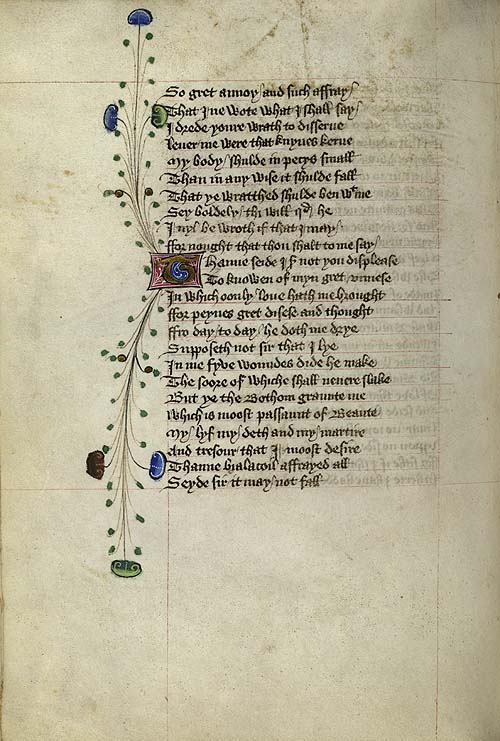 So gret annoy and such affray
That I ne wote what I shall say
I drede youre wrath to disserue
leuer me were that knyues kerue
My body shulde in pecys small
Than in any wise it shulde fall
That ye wratthed shulde ben wt me
Sey boldely thi will qd he
I nyl be wroth if that I may
ffor nought that thou shalt to me say
Thanne seide I sir not you displease
To knowen of myn gret vnnese
In which oonly loue hath me brought
ffor peynes gret disese and thought
ffro day to day he doth me drye
Supposeth not sir that I lye
In me fyve woundes dide he make
The soore of whiche shall neuere slake
But ye the Bothom graunte me
which is moost passaunt of Beaute
My lyf my deth and my martire
And tresour that I moost desire
Thanne Bialacoil affrayed all
Seyde sir it may not fall